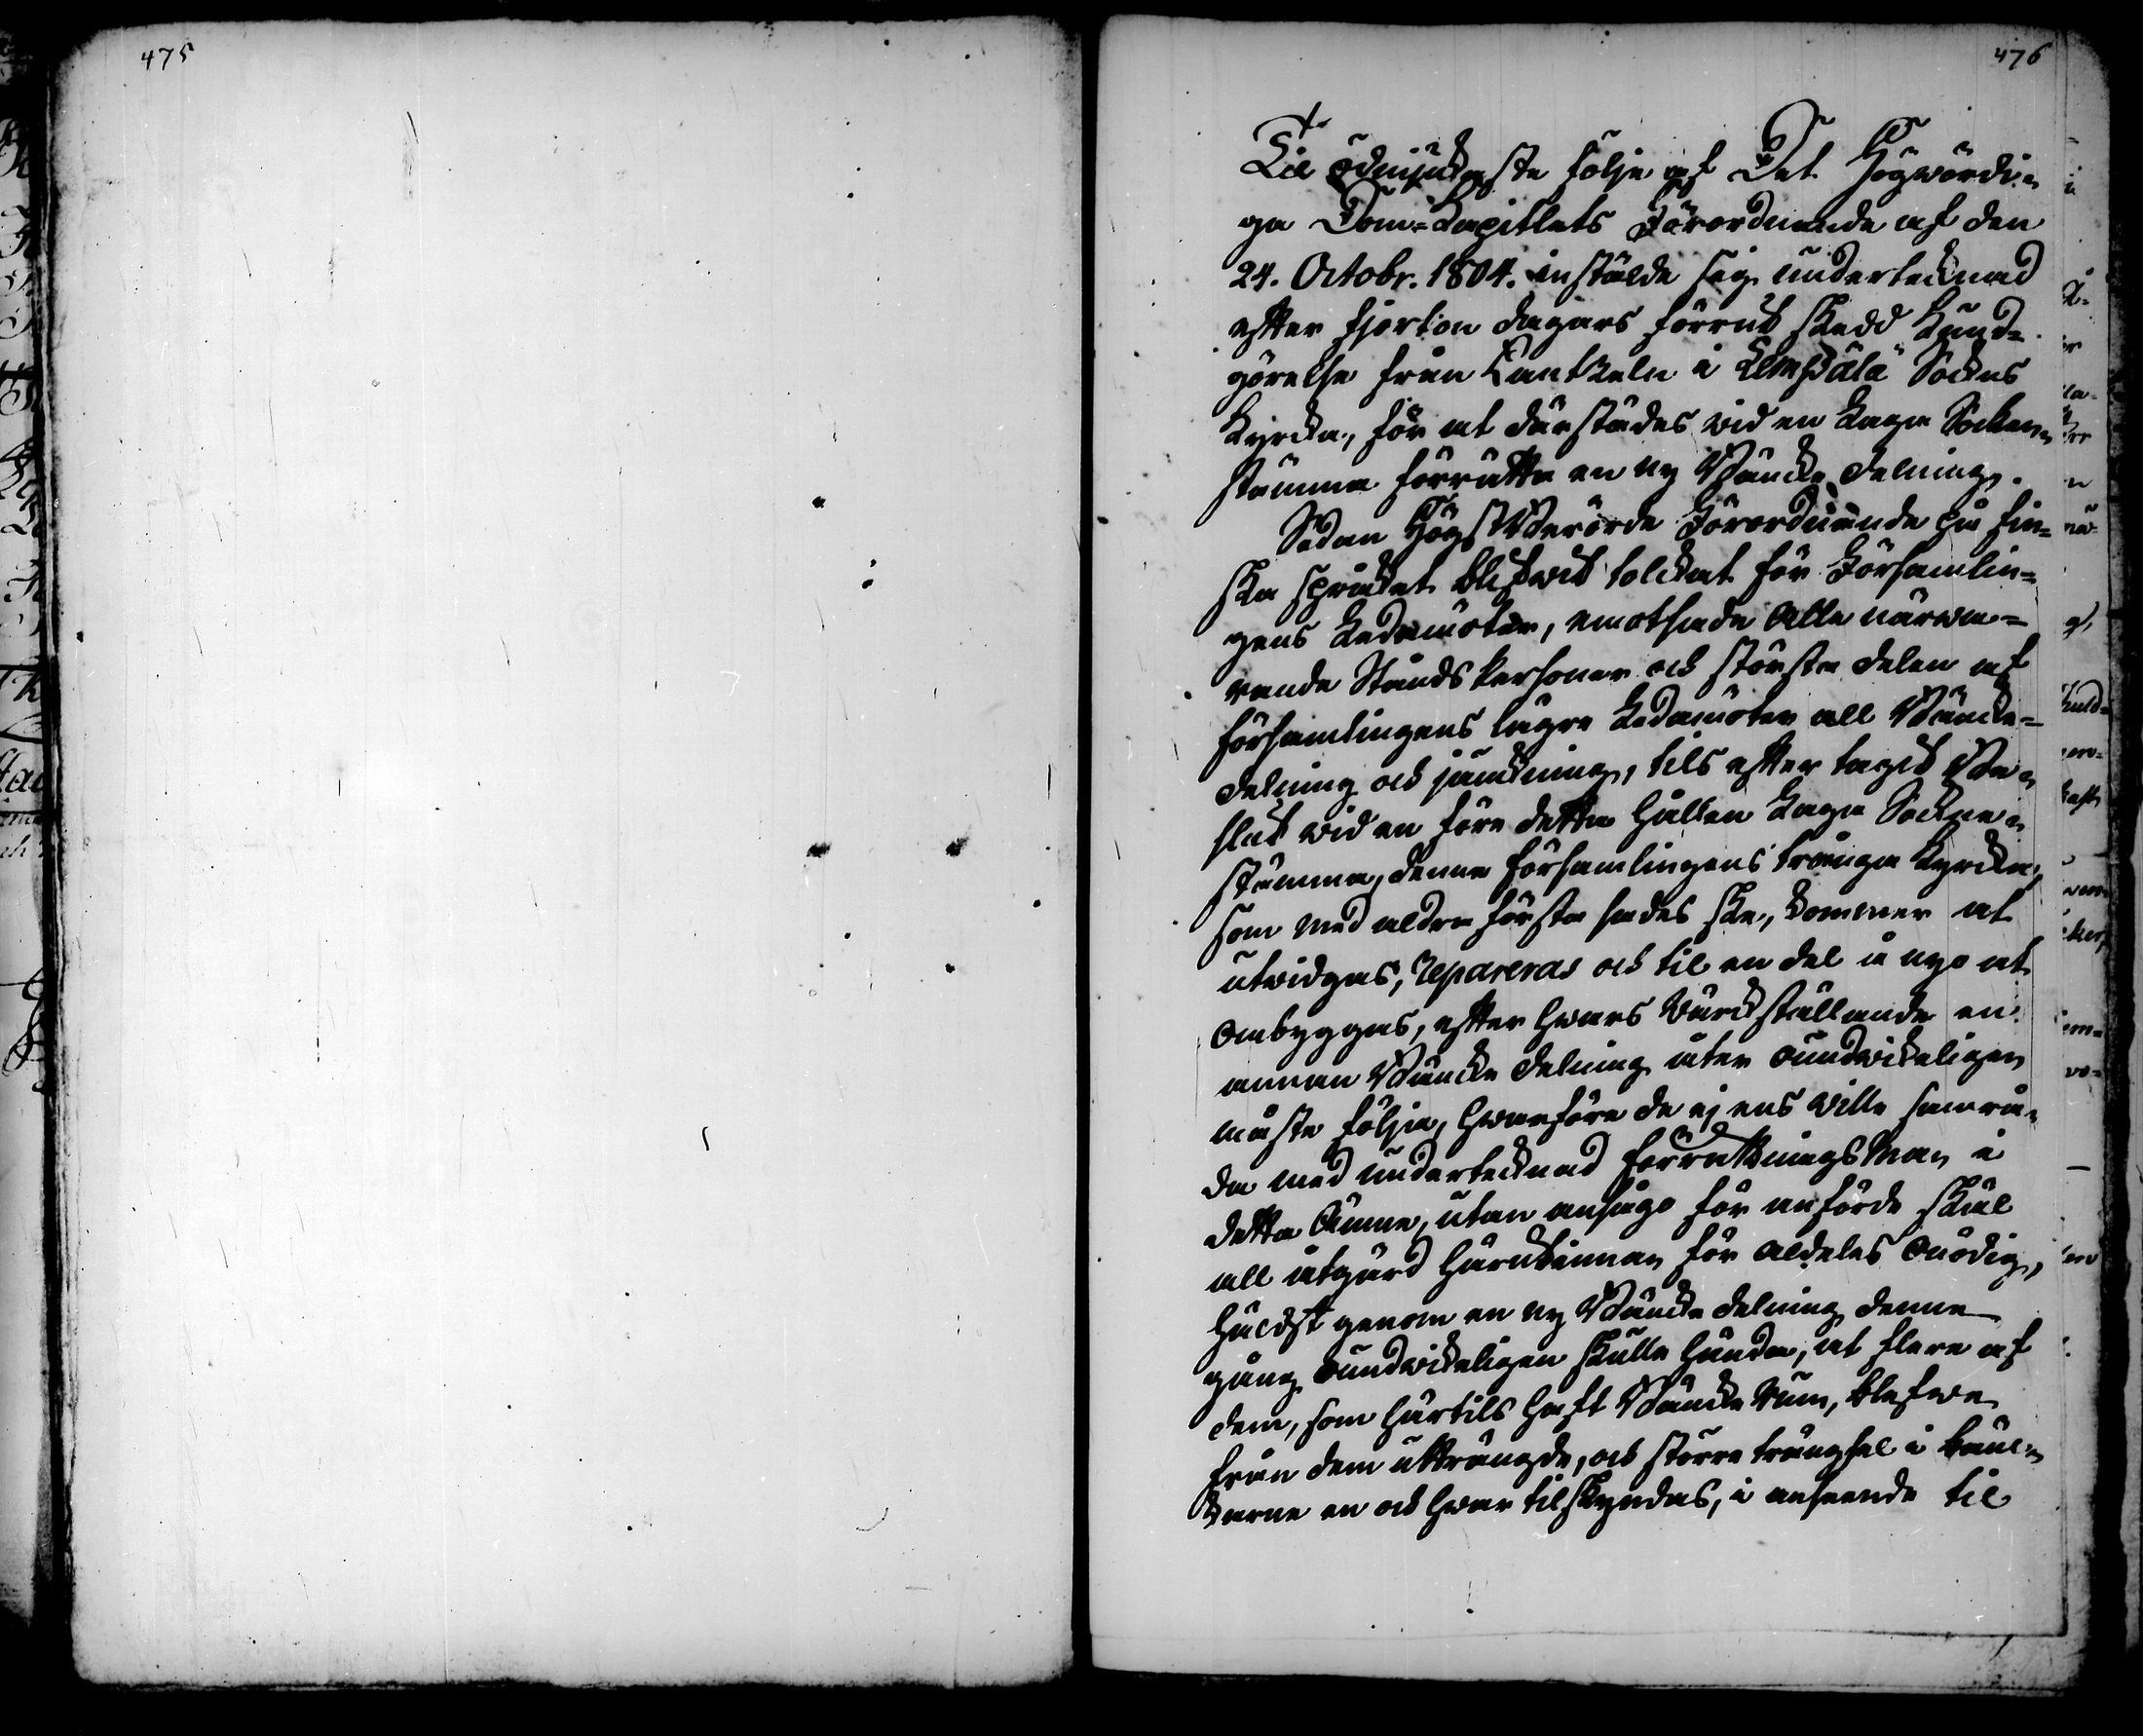 475
476
Til ödmjukaste följe af Det Högwördi=
ga Dom=Capitlets Förordnande af den
24. Octobr. 1804. instälde sig undertecknad
efter fjorton dagars förrut skedd Kund=
görelse från Cantzeln i Lembälä Sockns
Kyrcka, för at därstädes wid en Laga Socken=
stämma förrätta en ny Bäncke delning.
Sedan Högst Berörde Förordnande på fin=
ska språcket blifwit tolckat för Församlin=
gens Ledamöter, emotsade alla närwa=
rande Ståndspersoner och största delen af
församlingens lägre Ledamöter all Bäncke=
delning och jämckning, tils efter tagit Be=
slut wid en före detta hållen Laga Sockne=
stämma, denna församlingens trånga Kyrcka,
som med aldra första sades ske, kommer at
utwidgas, repareras och til en del å nyo at
ombyggas, efter hwars wärckställande en
annan Bäncke delning åter oundwikeligen
måste följa, hwarföre de ej ens wille samrå=
da med undertecknad förrättningsman i
detta ämne, utan ansågo för anförde skäl
all åtgärd härutinnan för aldeles onödig,
häldst genom en ny Bäncke delning denna
gång oundwikeligen skulle hända, at flere af
dem, som härtils haft Bäncke rum, blefwe
från dem utträngde, och större trängsel i bänc=
karne en och hwar tilskyndas, i anseende til